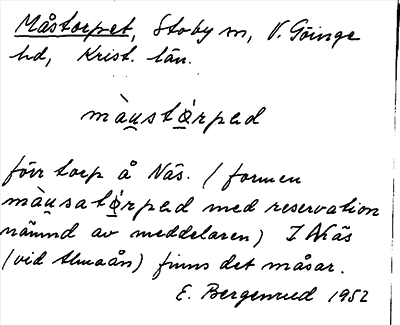 Måstorpet, Stoby sn, V. Göinge
hd, Krist. län.
màu̲stǿ̲rped
förr torp å Näs. (formen
màu̲satǿ̲rped med reservation
nämnd av meddelaren) I Näs
(vid Almaån) finns det måsar.
E. Bergenrud 1952